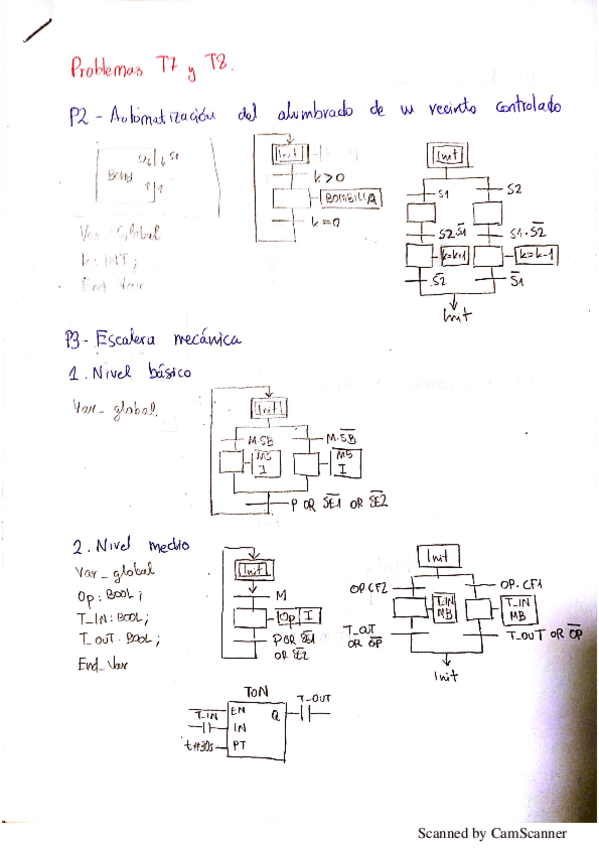 Problemas T7 y T8.
P2 - Automatización del alumbrado de un recinto controlado
S2 S1
Init
k>0
BOMBILLA
k=0
Init
S1
S2
S2·S̅1̅
S1·S̅2̅
k=k+1
k=k-1
S̅2̅
S̅1̅
Init
Var Global
k: INT;
End_Var
P3 - Escalera mecánica
1. Nivel básico
Var_global
Init
M·SB
M·S̅B̅
MS
I
MB
I
P OR S̅E̅1̅ OR S̅E̅2̅
2. Nivel medio
Var_global
Op: BOOL;
T_IN: BOOL;
T_OUT: BOOL;
End_Var
Init
M
Op I
P OR S̅E̅1̅
OR S̅E̅2̅
Init
OP·CF2
OP·CF1
T_IN
MB
T_IN
MB
T_OUT
OR O̅P̅
T_OUT OR O̅P̅
Init
TON
T_IN
EN
IN
t#30s
PT
Q
T_OUT
Scanned by CamScanner